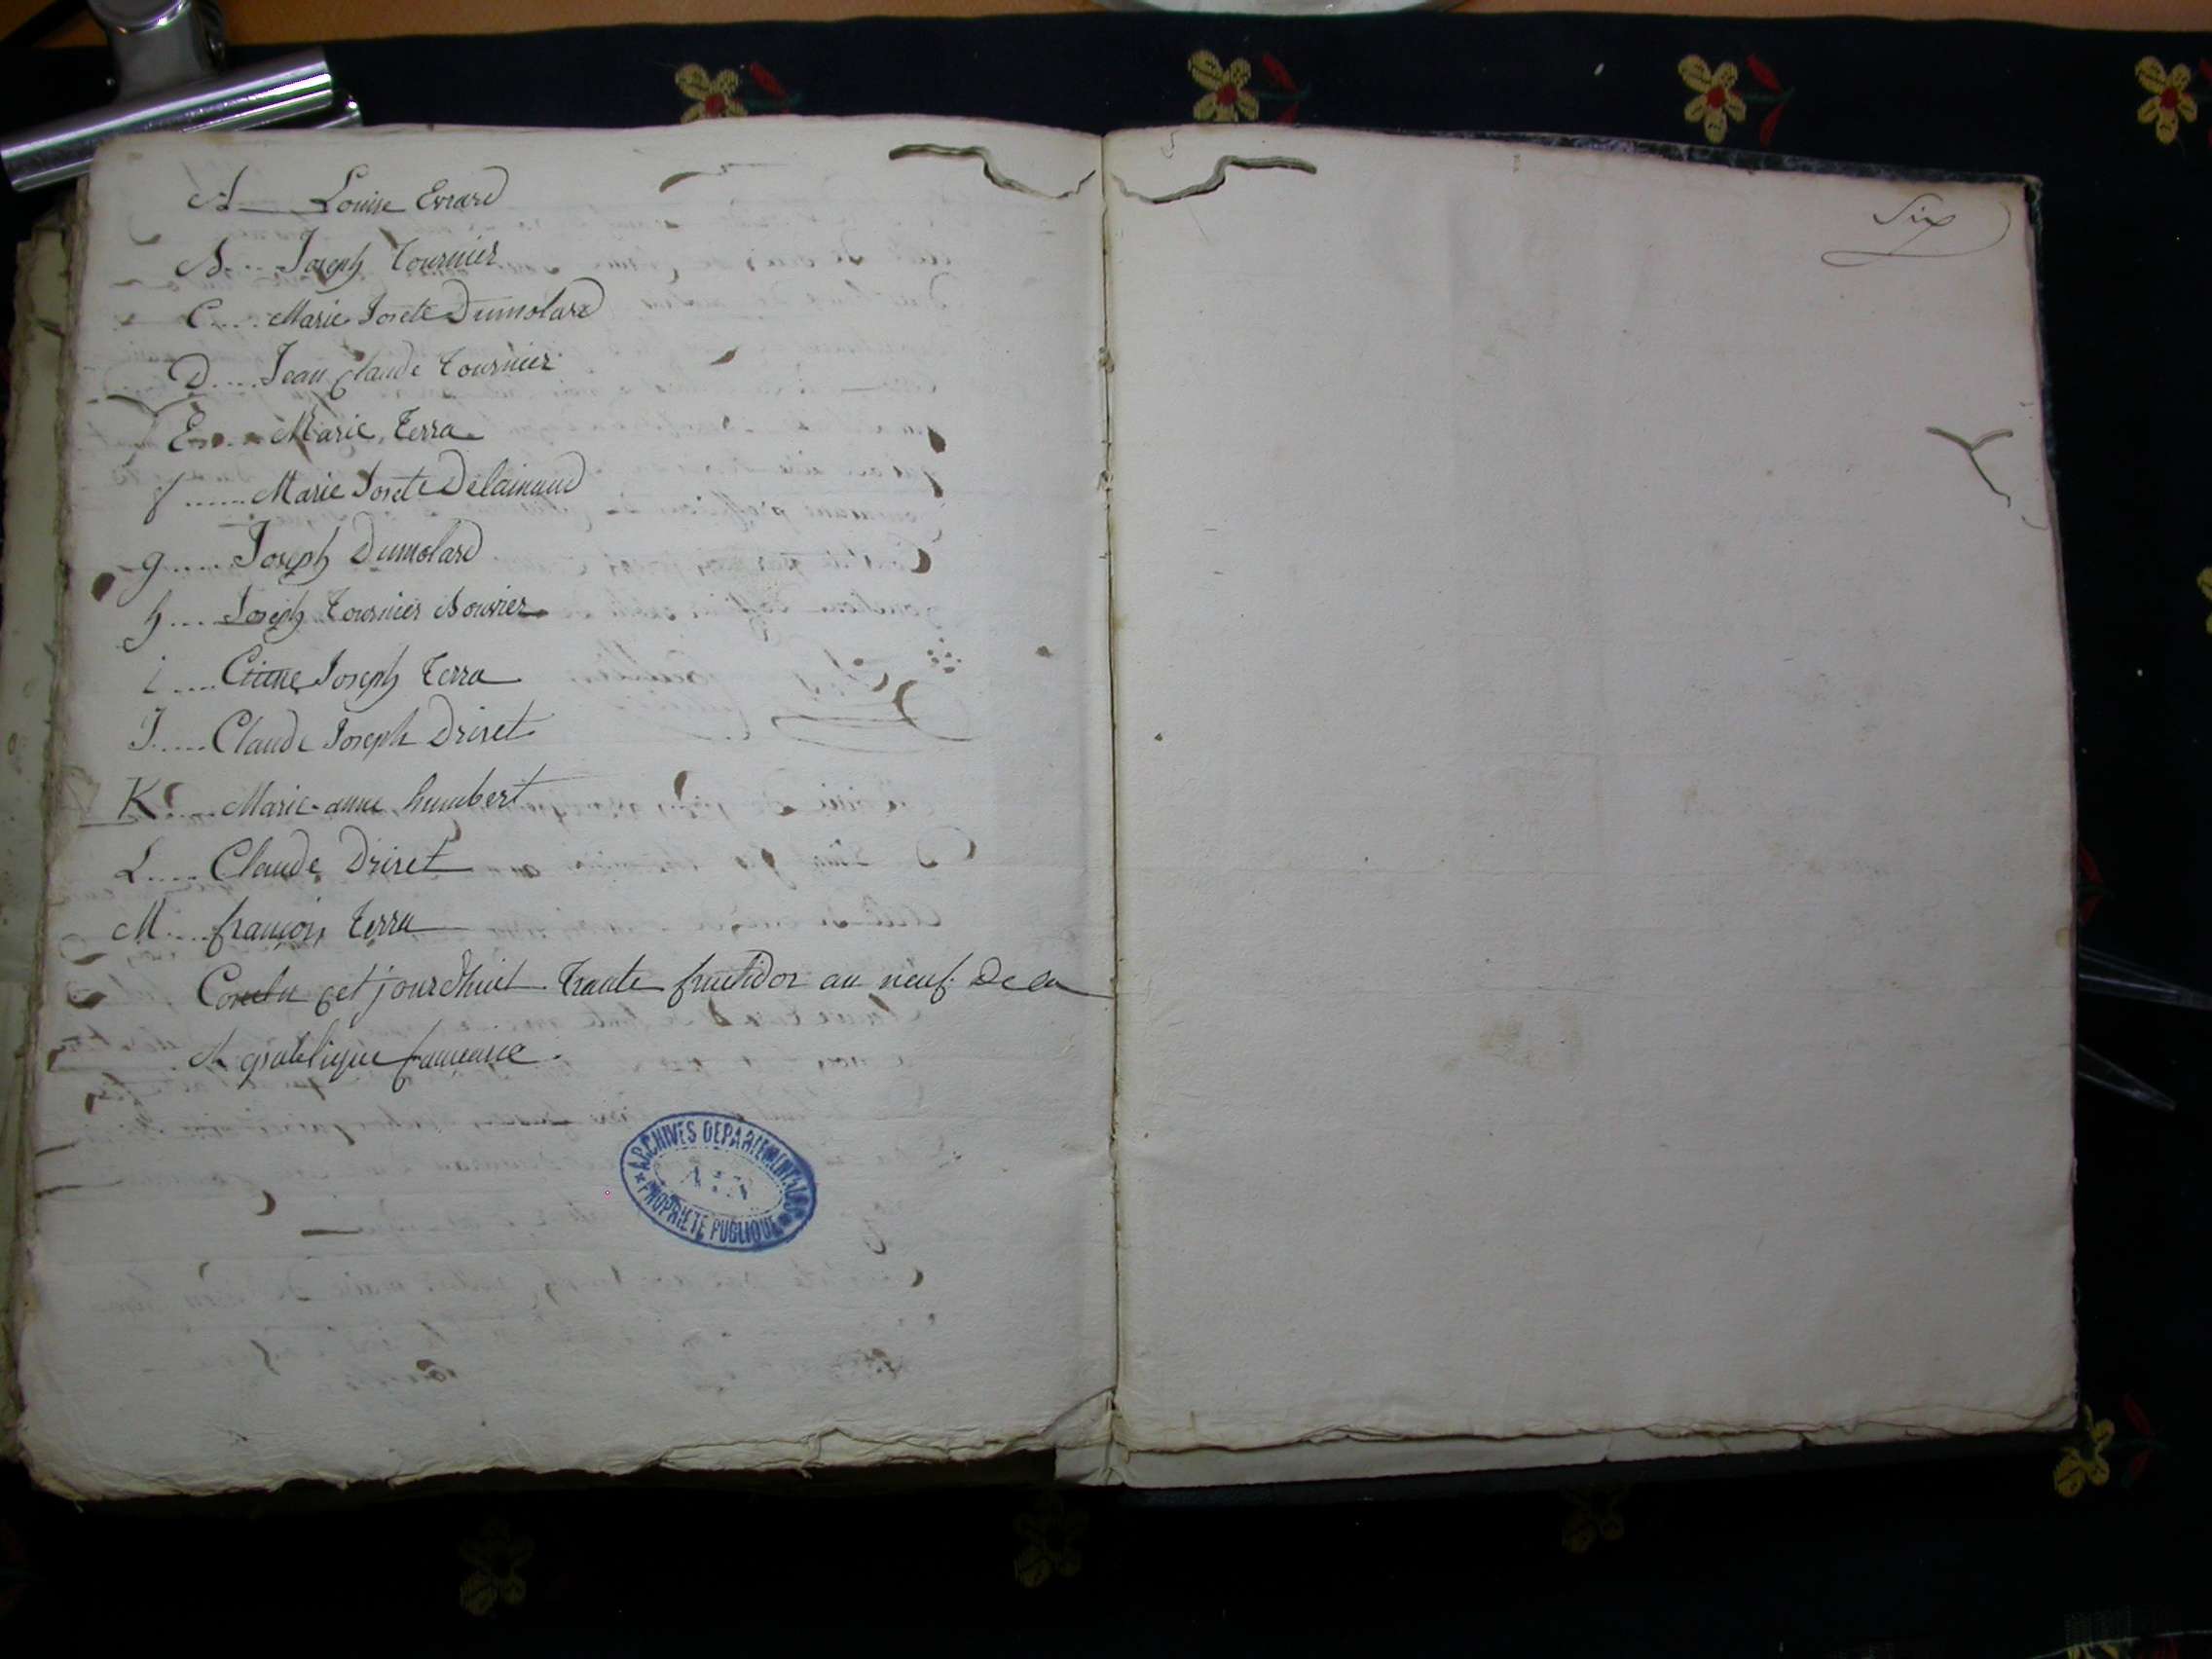 A Louise Evrard
B.... Joseph Tournier
C.... Marie Josete Dumolard
D.... Jean Claude Tournier
E.... Marie Terra
f...... Marie Josete
g..... Joseph Dumolard
h.... Joseph Tournier Bouvier
i.... Joseph Terra
J..... Claude Joseph Driret
K..... Marie anne humbert
L.... Claude Driret
M.... françois Terra
cet jourdhuit trante fructidor an neuf de la
Republique francaise.
ARCHIVES DEPARTEMENTALES
AIN
PROPRIETE PUBLIQUE
Six